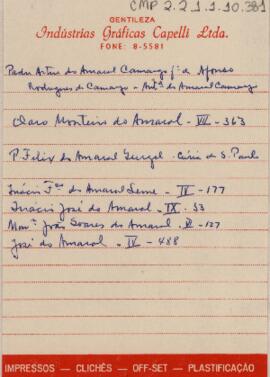 CMP 2.2.1.1.10.381
GENTILEZA
Indústrias Gráficas Capelli Ltda.
FONE: 8-5581
Padre Artur do Amaral Camargo fº de Afonso
Rodrigues de Camargo - Antª do Amaral Camargo
Claro Monteiro do Amaral - VII - 363
P. Felix do Amaral Gurgel - Cúria de S. Paulo
Inácio Fco do Amaral Leme - IV - 177
Inácio José do Amaral - IX - 53
Manª João Soares do Amaral - V - 127
José do Amaral - IV - 488
IMPRESSOS — CLICHÊS — OFF-SET — PLASTIFICAÇÃO